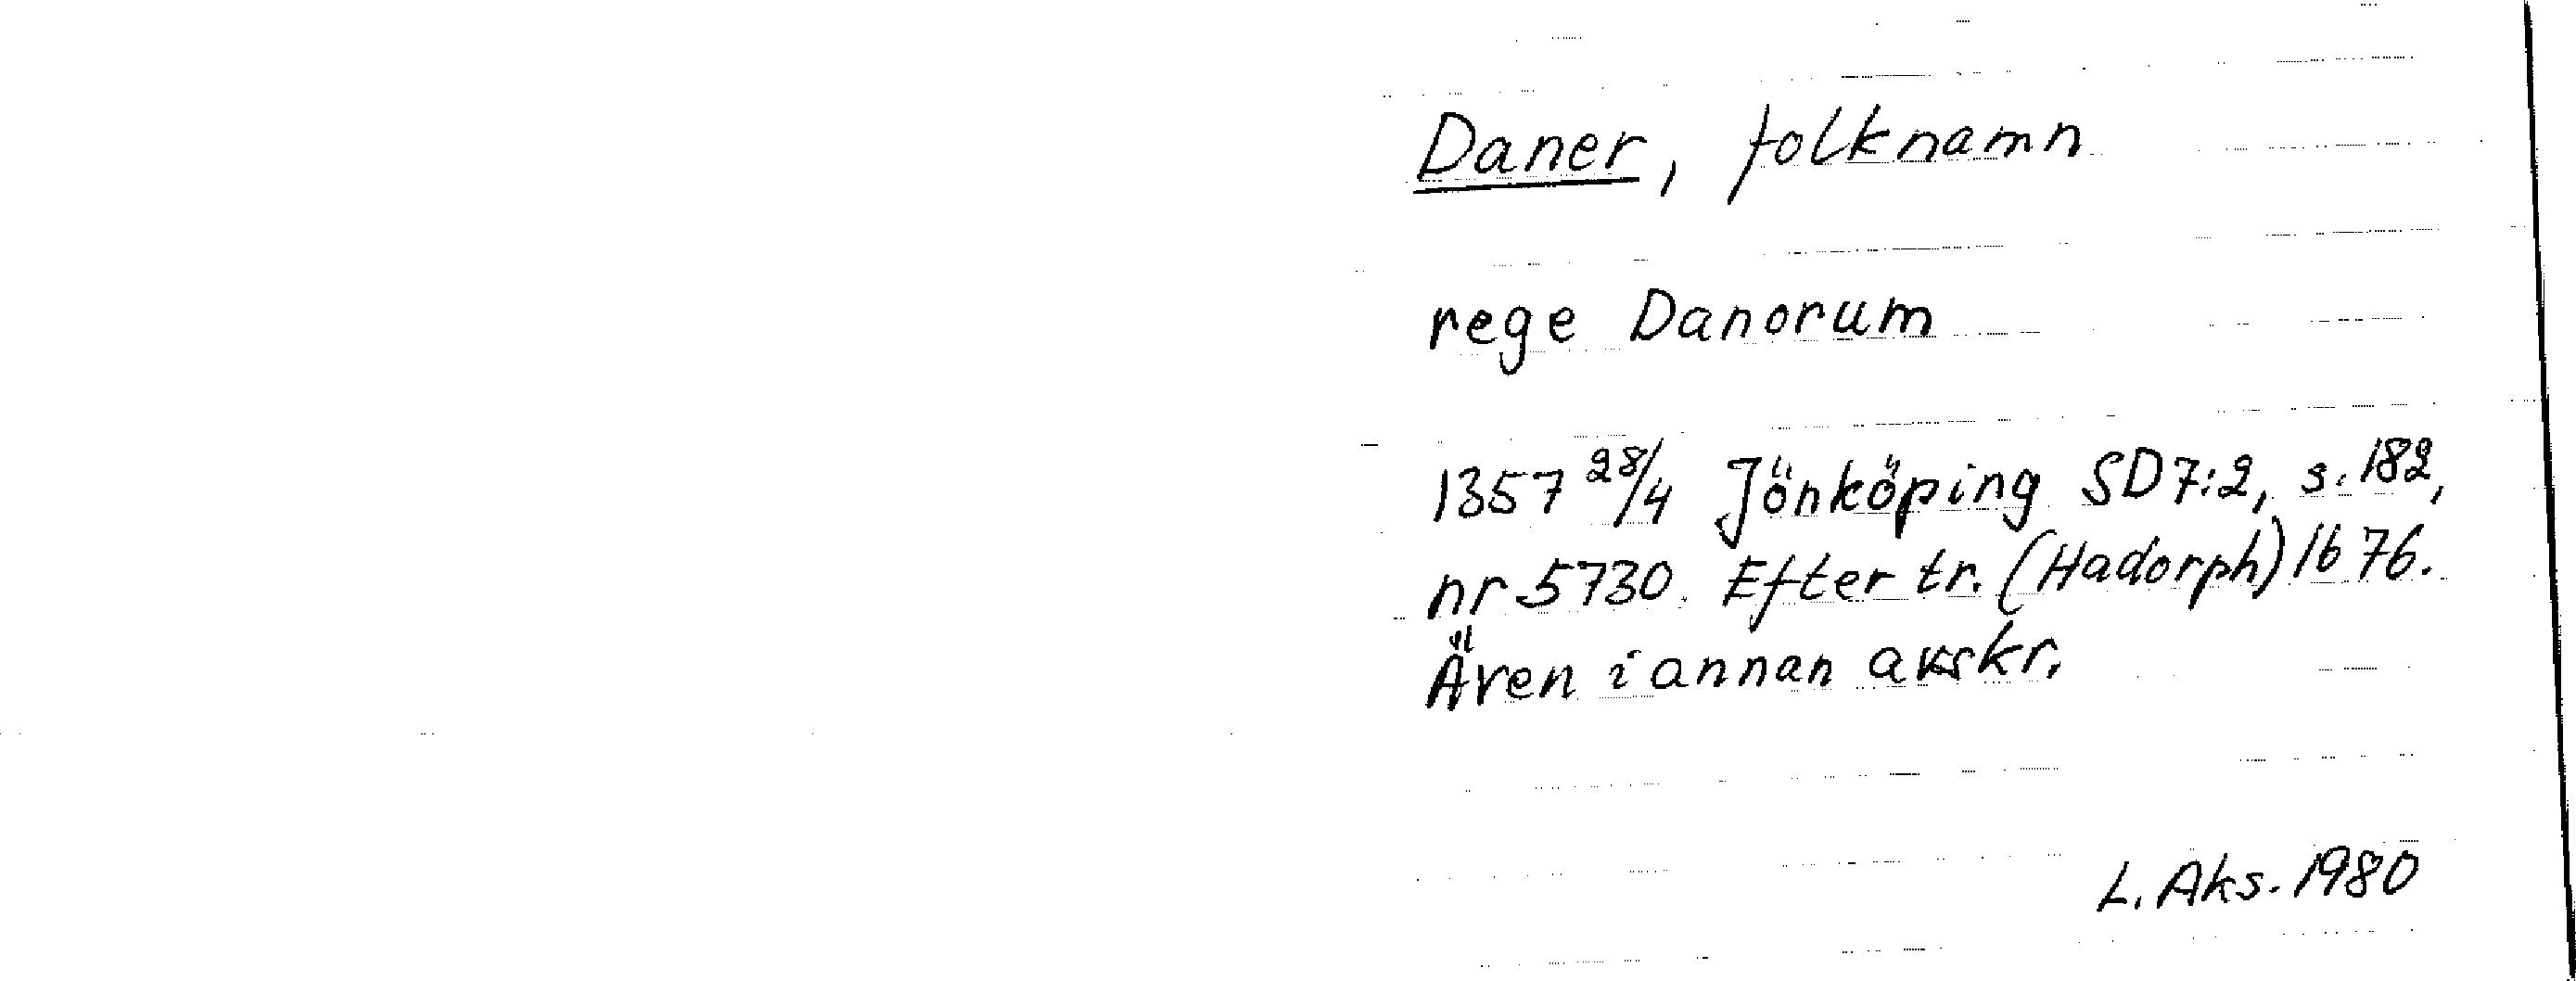 Daner, folknamn
rege Danorum
1357 28/4 Jönköping SD 7:2, s. 182,
nr 5730. Efter tr. (Hadorph) 1676.
Även i annan avskr.
L. Aks. 1980